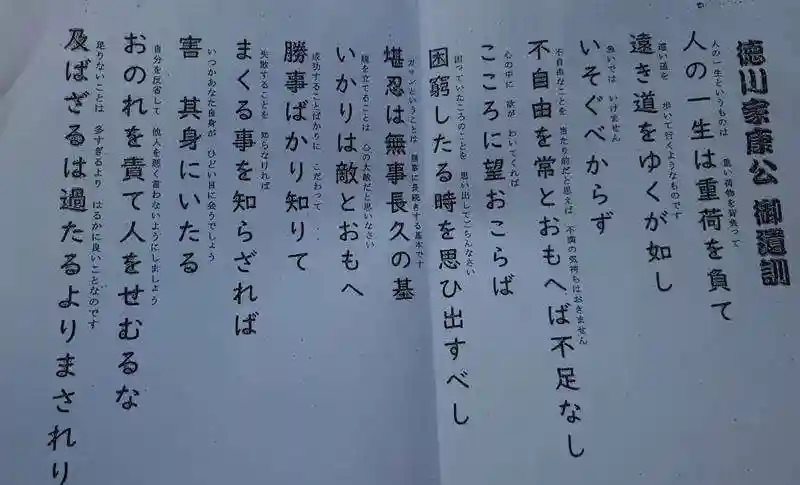 徳川家康公 御遺訓
人の一生というものは 重い荷物を背負って
人の一生は重荷を負て
遠い道を 歩いて行くようなものです
遠き道をゆくが如し
急いでは いけません
いそぐべからず
不自由なことを 当たり前だと思えば 不満の気持ちはおきません
不自由を常とおもへば不足なし
心の中に 欲が わいてくれば
こころに望おこらば
困っていたころのことを 思い出してごらんなさい
困窮したる時を思ひ出すべし
ガマンということは 無事に長続きする基本です
堪忍は無事長久の基
腹を立てることは 心の大敵だと思いなさい
いかりは敵とおもへ
成功することばかりに こだわって
勝事ばかり知りて
失敗することを 知らなければ
まくる事を知らざれば
いつかあなた自身が ひどい目に会うでしょう
害 其身にいたる
自分を反省して 他人を悪く言わないようにしましょう
おのれを責て人をせむるな
足りないことは 多すぎるより はるかに良いことなのです
及ばざるは過たるよりまされり